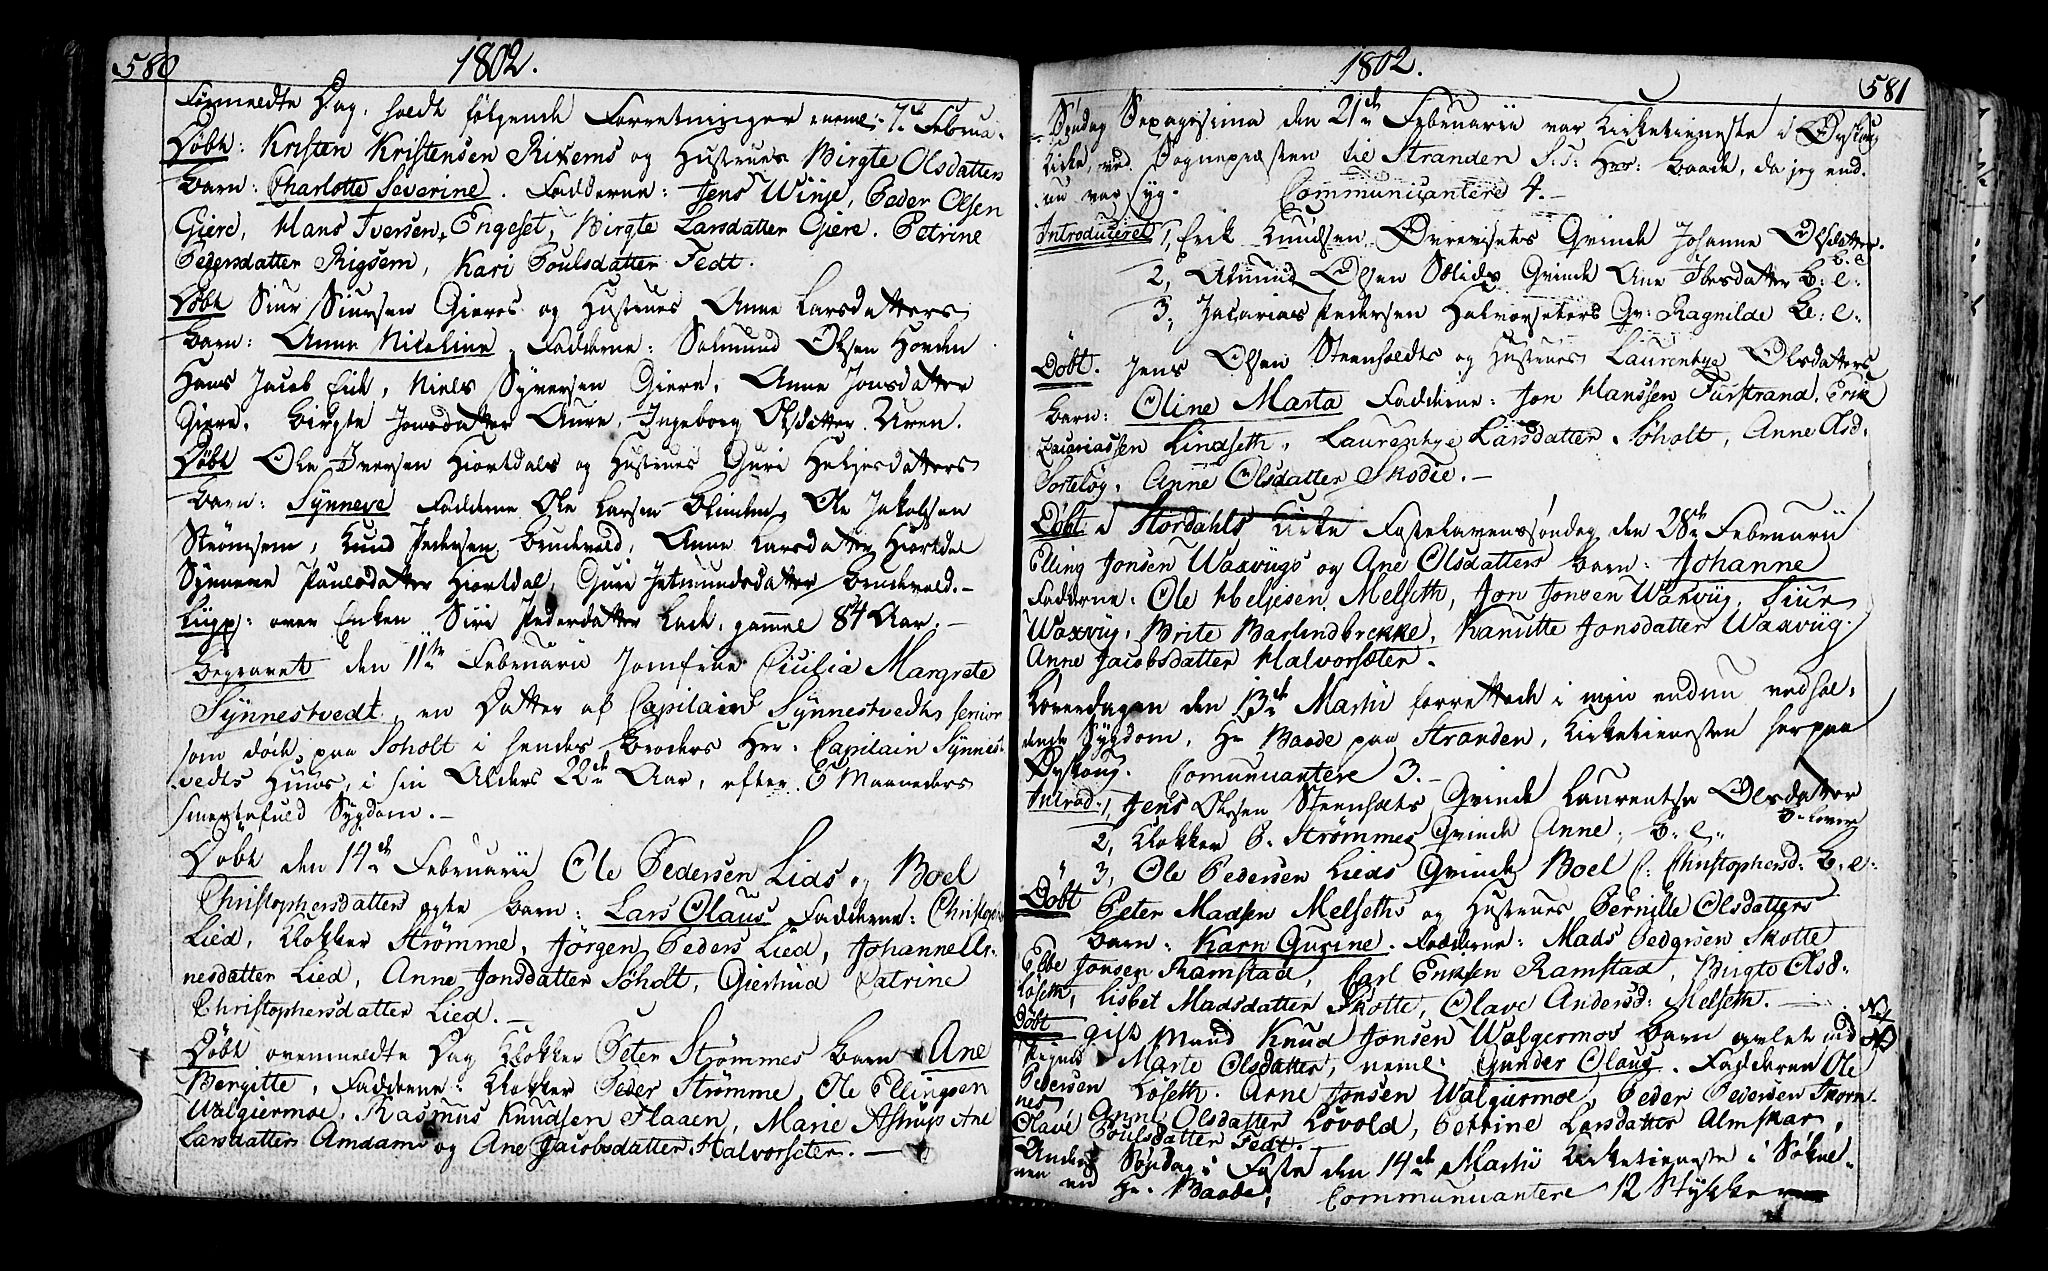 580
1802.
Formeldte Dag, holdt følgende Forretninger neml: 7de Februa:
Døbt: Kristen Kristensen Rixems og Hustrues Birgte Olsdatters
Barn: Charlotte Severine. Fadderne: Jens Winje, Peder Olsen
Giere, Hans Iversen Engeset, Birgte Larsdatter Giere. Petrine
Pedersdatter Rigsem, Kari Poulsdatter Fedt.
Døbt Siur Siursen Gieres og Hustrues Anne Larsdatters
Barn: Anne Nicoline Fadderne: Salmund Olsen Hovden
Hans Jacob Eid, Niels Syversen Giere, Anne Jonsdatter
Giere, Birgte Jonsdatter Aure, Ingeborg Olsdatter Uren.
Døbt Ole Iversen Hiortdals og Hustrues Guri Heljesdatters
Barn: Synneve Fadderne Ole Larsen Blindem, Ole Jakobsen
Strømsem, Knud Pedersen Brudevold, Anne Larsdatter Hiortdal
Synneve Paulsdatter Hiortdal, Guri Jetmundsdatter Brudevold.—
over Enken Siri Pedersdatter gammel 84 Aar.—
Begravet den 11te Februarii Jomfrue Cicilia Margrete
Synnestvedt en Datter af Capitain Synnestvedts senior
som døde paa Søholt i hendes Broders Hr: Capitain Synnest-
vedts Huus, i sin Alders 22de Aar, efter 6 Maaneders
smertefuld Sygdom.—
Døbt den 14de Februarii Ole Pedersen Lids og Boel
Christophersdatters ægte Barn: Lars Olaus Fadderne: Christopher
Lied, Klokker Strømme, Jørgen Peders Lied, Johanne
nesdatter Lied, Anne Jonsdatter Søholt, Giertrud Catrine
Christophersdatter Lied.—
Døbt ovenmeldte Dag Klokker Peter Strømmes Barn Ane
Bergitte, Fadderne: Klokker Peder Strømme, Ole Ellingsen
Walgiermoe, Rasmus Knudsen Flaaen, Marie Astrup Ane
Larsdatter Amdam og Ane Jacobsdatter Halvorseter.—
581
1802.
Søndag Sexagesima den 21de Februarii var Kirketieneste i Ørskoug
Kirke, ved Sognepræsten til Stranden S: Hr: Baade, da jeg end-
nu var syg. Communicantere 4.—
Introduceret 1, Erik Knudsen Øvrevisets Qvinde Johanne Olsdatter
b: e
2, Olsen Qvinde Ane Iversdatter b: e:
3, Zacarias Pedersen Halvorseters Qv: Ragnilde b: e:
Døbt. Jens Olsen Steenholdts og Hustrues Laurentze Olsdatters
Barn: Oline Marta Fadderne: Jon Hanssen Furstrand, Erik
Zacariassen Lindseth, Laurentze Larsdatter Søholt, Anne Olsd.
Anne Olsdatter Skodie.—
Døbt i Stordahls Kirke Fastelavenssøndag den 28de Februarii
Elling Jonsen Waxvigs og Ane Olsdatters Barn: Johanne
Fadderne: Ole Heljesen Melseth, Jon Jonsen Waxvig, Siur
Waxvig, Brite Barlindbrekke, Kanutte Jonsdatter Waxvig.
Anne Jacobsdatter Halvorsæter.
Løverdagen den 13de Martii forrettede i min endnu vedhol-
dende Sygdom, Hr Baade paa Stranden, Kirketienesten her paa
Ørskoug. Comunicantere 3.—
Introd: 1, Jens Olsen Steenholts Qvinde Laurentse Olsdatter
b: lever
2, Klokker P. Strømmes Qvinde Anne, b: e:
3, Ole Pedersen Lieds Qvinde Boel C: Christophersd: b: e:
Døbt Peter Madsen Melseths og Hustrues Pernille Olsdatters
Barn: Karn Gurine. Fadderne: Mads Pedersen Skotte
Ebbe Jonsen Ramstad, Carl Eriksen Ramstad, Birgte Olsd-
Løseth, Lisbet Madsdatter Skotte, Olave Andersd: Melseth.—
Døbt gift Mand Knud Jonsen Walgermos Barn avlet ud
Marte Olsdatter, neml: Gunder Olaus. Fadderne Ole
Pedersen Løseth. Arne Jonsen Walgiermoe, Peder Pedersen
Anne Olsdatter Løvold, Petrine Larsdatter Almskar,
Olave Poulsdatter Fedt.
Søndag i Faste den 14de Martii Kirketieneste i
ved Hr. Baade, Communicantere 12 Stykker